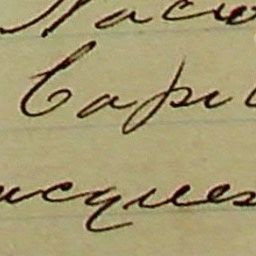 Naci
Capi
acques